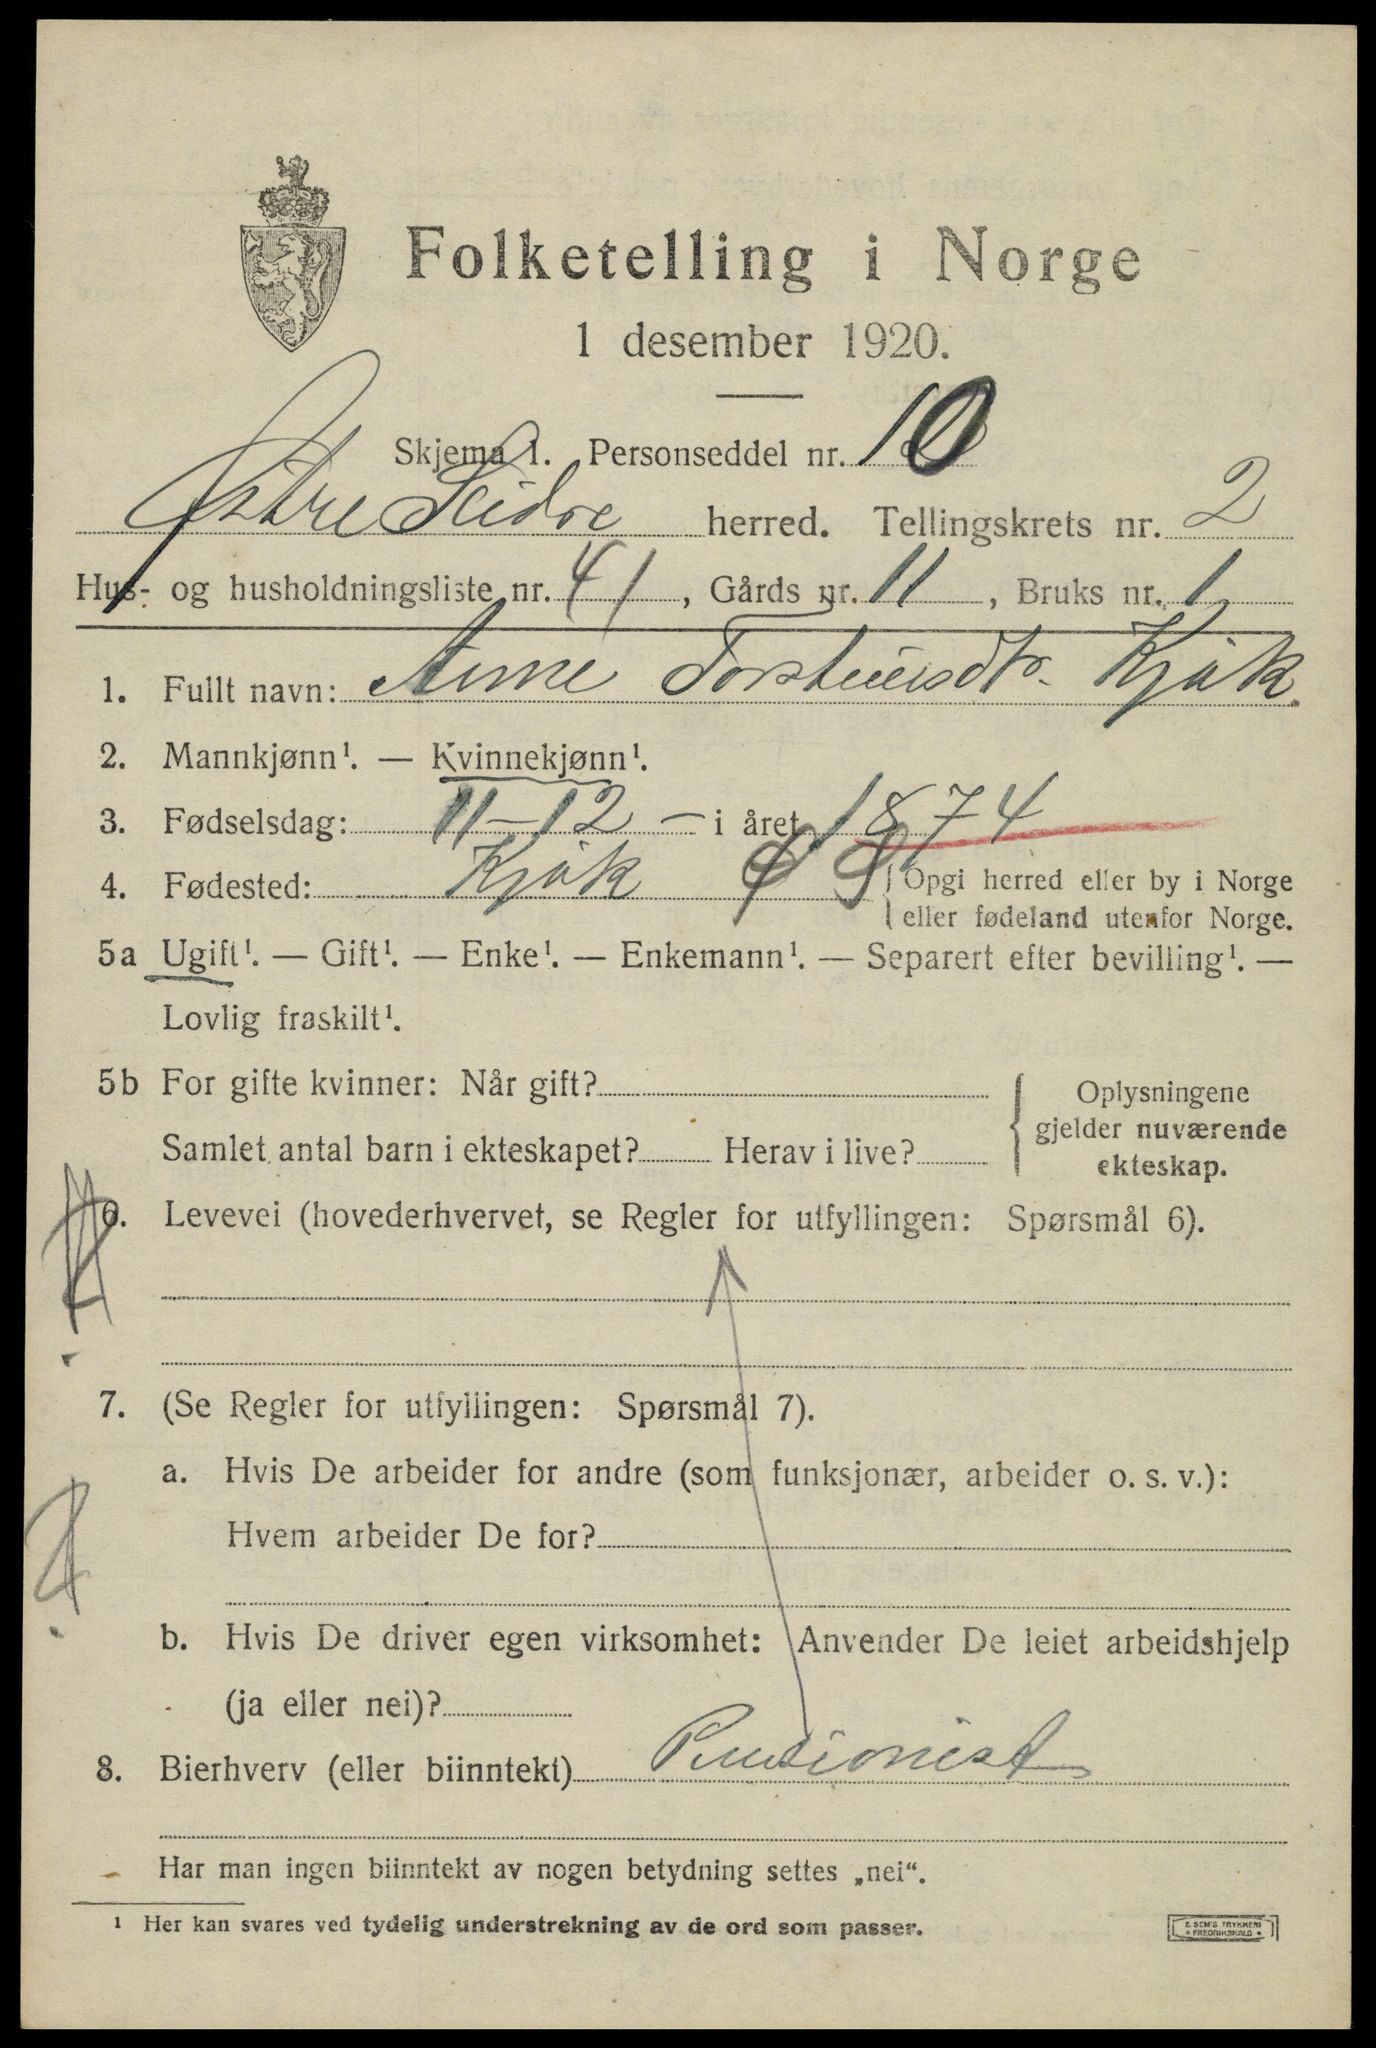 Folketelling i Norge
1 desember 1920.
Skjema 1. Personseddel nr. 10
Østre Slidre herred. Tellingskrets nr. 2
Hus- og husholdningsliste nr. 41, Gårds nr. 11, Bruks nr. 1
1. Fullt navn: Anne Torsteinsdtr. Kjøk
2. Mannkjønn¹. — Kvinnekjønn¹.
3. Fødselsdag: 11-12 - i året 1874
4. Fødested: Kjøk Opgi herred eller by i Norge
eller fødeland utenfor Norge.
5a Ugift¹. — Gift¹. — Enke¹. — Enkemann¹. — Separert efter bevilling¹. —
Lovlig fraskilt¹.
5b For gifte kvinner: Når gift?
Samlet antal barn i ekteskapet? Herav i live?
Oplysningene
gjelder nuværende
ekteskap.
6. Levevei (hovederhvervet, se Regler for utfyllingen: Spørsmål 6).
7. (Se Regler for utfyllingen: Spørsmål 7).
a. Hvis De arbeider for andre (som funksjonær, arbeider o. s. v.):
Hvem arbeider De for?
b. Hvis De driver egen virksomhet: Anvender De leiet arbeidshjelp
(ja eller nei)?
8. Bierhverv (eller biinntekt) Pensionist
Har man ingen biinntekt av nogen betydning settes „nei“.
¹ Her kan svares ved tydelig understrekning av de ord som passer.
E. SEM'S TRYKKERI
FREDRIKSHALD